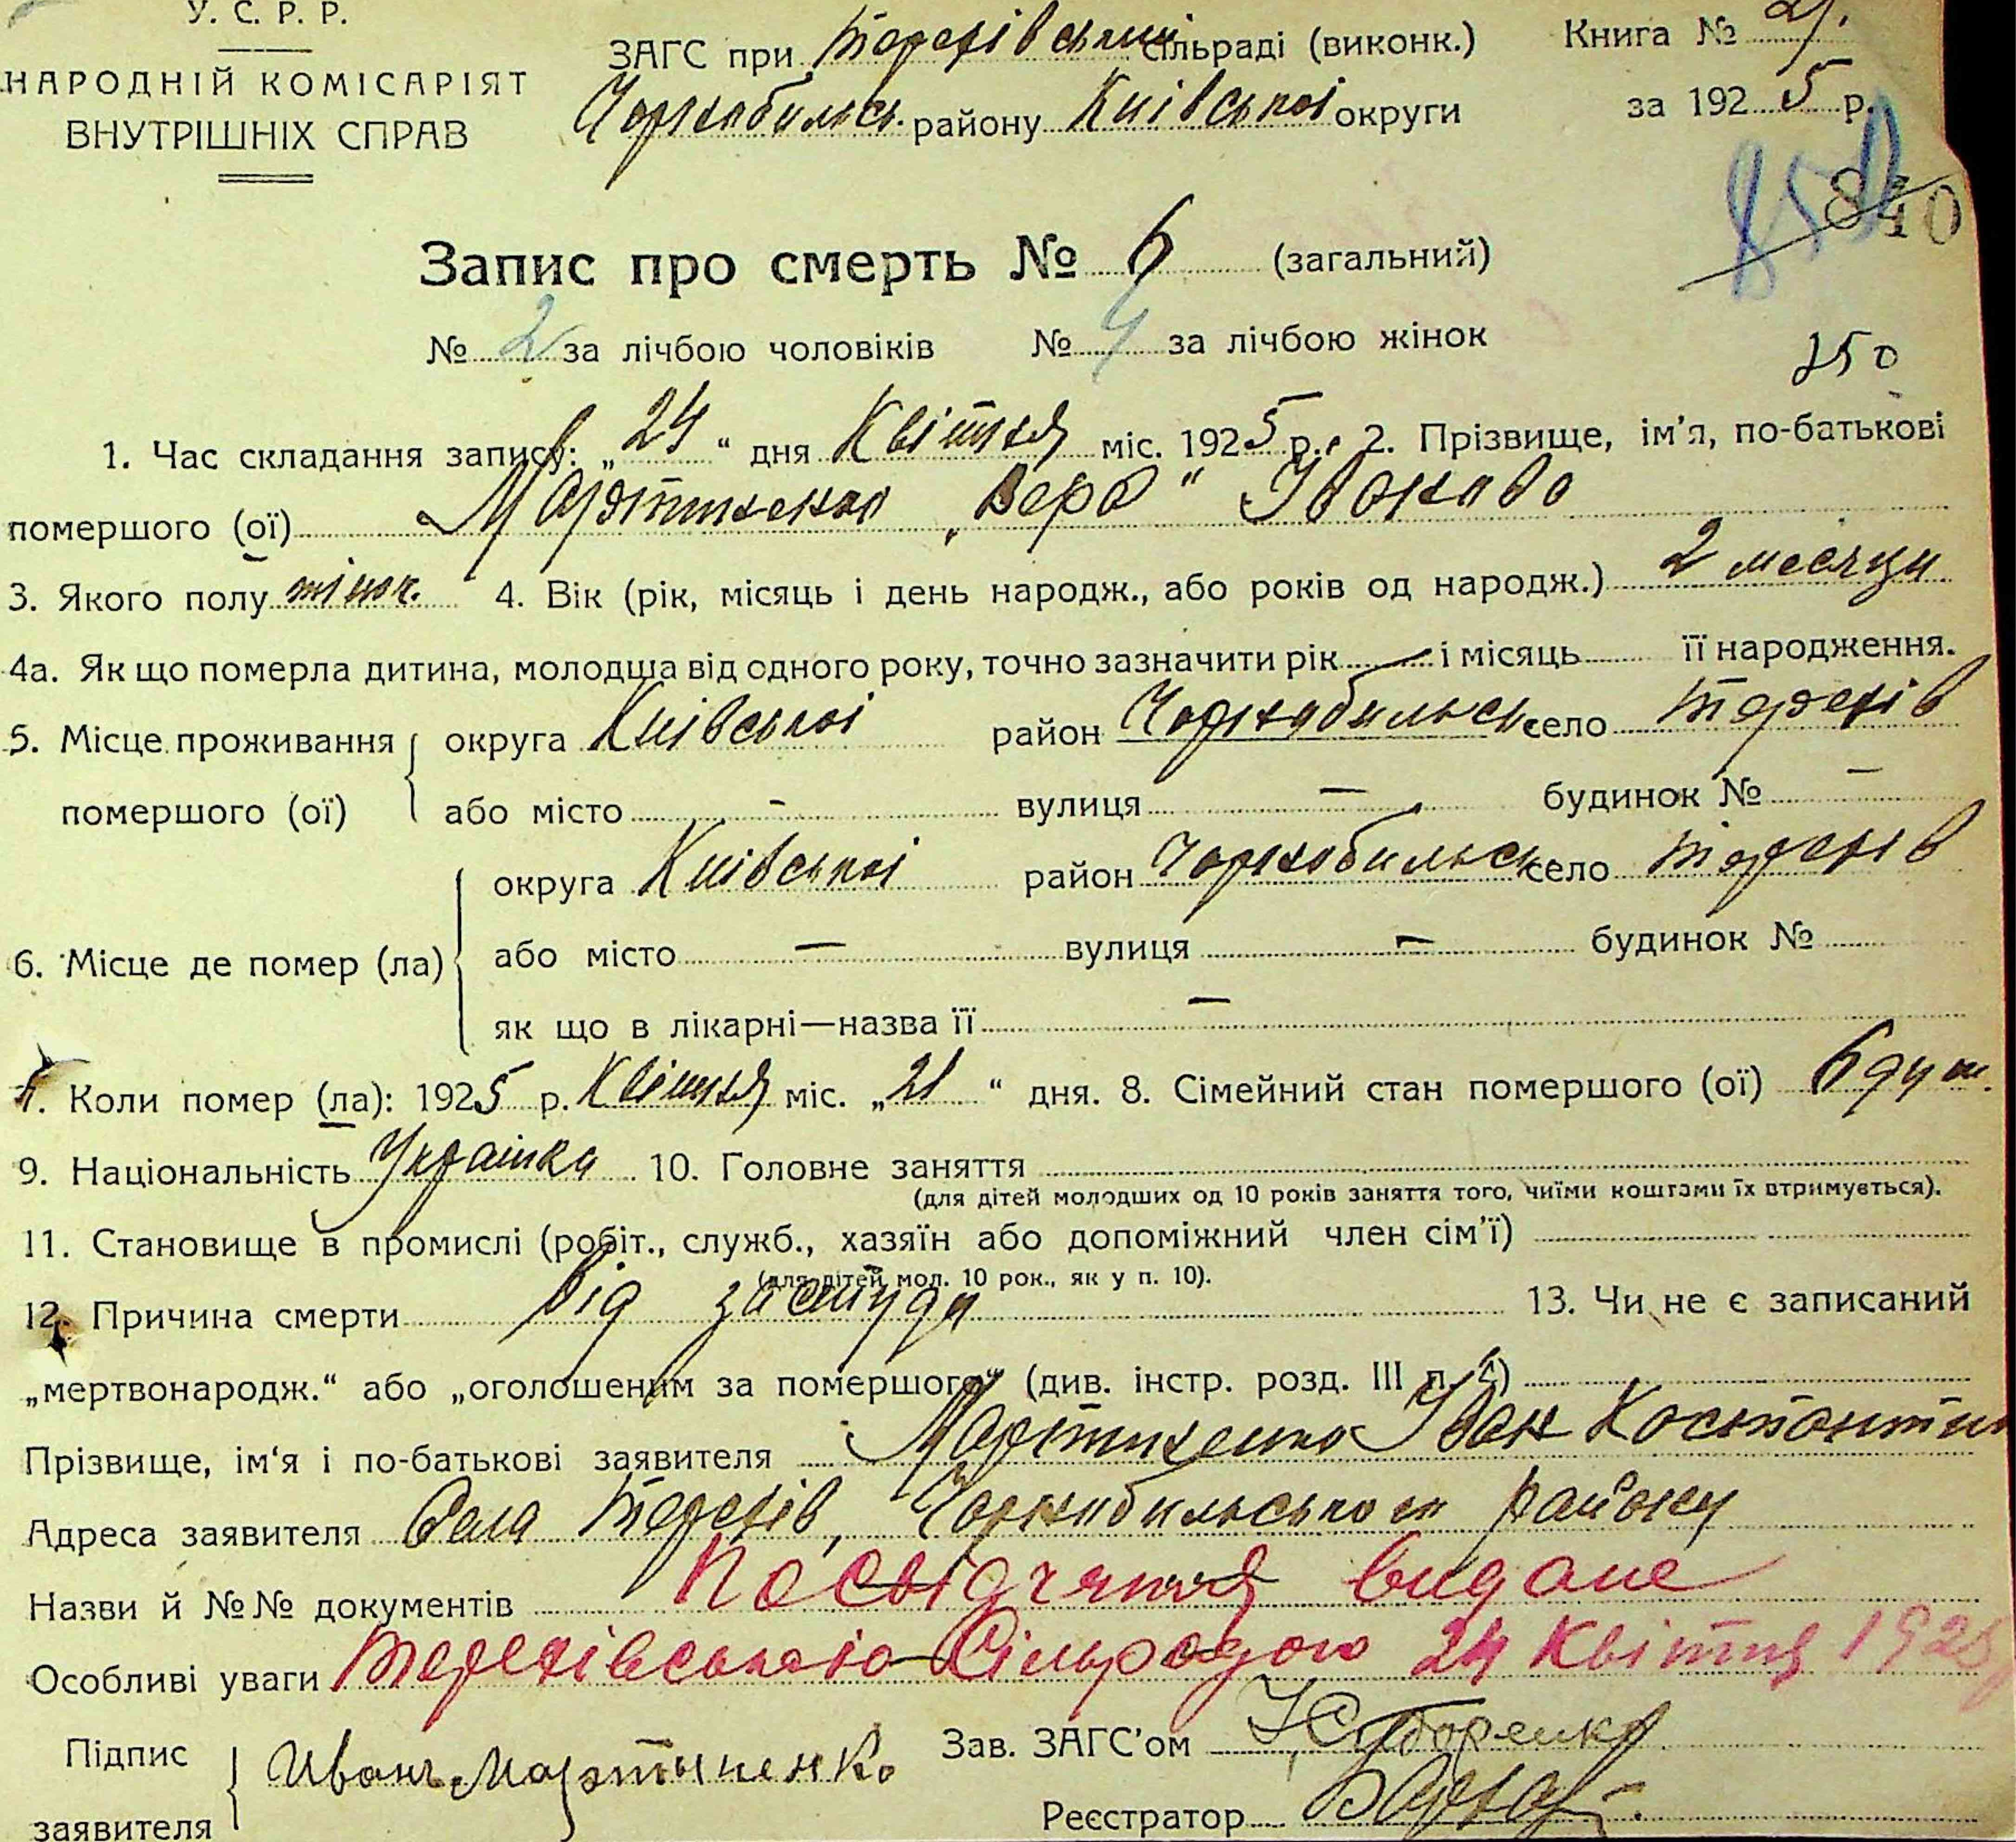 У. С. Р. Р.
НАРОДНІЙ КОМІСАРІЯТ
ВНУТРІШНІХ СПРАВ
ЗАГС при Терехівській сільраді (виконк.)
Чорнобильськ. району Київської округи
Книга №
за 1925 р.
840
850
Запис про смерть № 6 (загальний)
№ 2 за лічбою чоловіків № 4 за лічбою жінок
350
1. Час складання запису: „24“ дня Квітня міс. 1925 р. 2. Прізвище, ім'я, по-батькові
помершого (ої) Мартиненко „Вера“ Іванова
3. Якого полу жінок. 4. Вік (рік, місяць і день народж., або років од народж.) 2 месяци
4а. Як що померла дитина, молодша від одного року, точно зазначити рік — і місяць її народження.
5. Місце проживання помершого (ої) округа Київської район Чорнобильськ село Терехів
або місто — вулиця — будинок № —
6. Місце де помер (ла) округа Київської район Чорнобильськ село Терехів
або місто — вулиця — будинок №
як що в лікарні—назва її —
7. Коли помер (ла): 1925 р. Квітня міс. „21“ дня. 8. Сімейний стан помершого (ої) 6 душ.
9. Національність Українка 10. Головне заняття
(для дітей молодших од 10 років заняття того, чиїми коштами їх втримується).
11. Становище в промислі (робіт., служб., хазяїн або допоміжний член сім'ї)
(для дітей мол. 10 рок., як у п. 10).
12. Причина смерти від застуди 13. Чи не є записаний
„мертвонародж.“ або „оголошеним за помершого“ (див. інстр. розд. III п. 6)
Прізвище, ім'я і по-батькові заявителя Мартиненко Іван Костантин
Адреса заявителя Села Терехів, Чорнобильського району
Назви й №№ документів Посвідчення видане
Особливі уваги Терехівською Сільрадою 24 Квітня 1925
Підпис заявителя Иванъ Мартыненко
Зав. ЗАГС'ом
Реєстратор